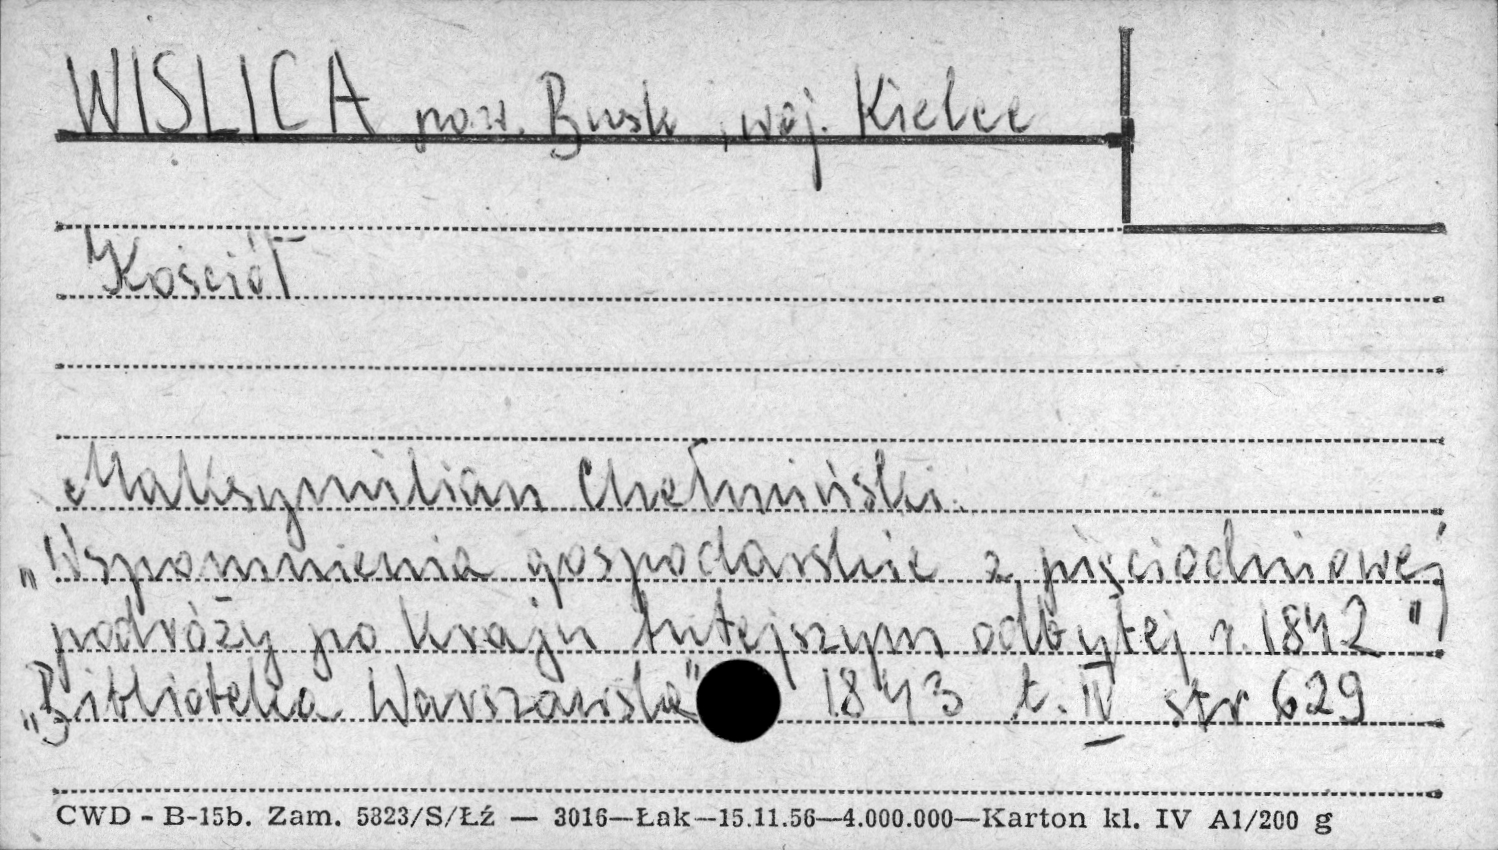 WISLICA pow. Busk, woj. Kielce
Kościół
Maksymilian Chełmiński.
„Wspomnienia gospodarskie z pięciodniowej
podróży po kraju tutejszym odbytej r. 1842"
„Biblioteka Warszawska" 1843 t. IV str 629
CWD - B-15b. Zam. 5823/S/Łź — 3016—Łak—15.11.56—4.000.000—Karton kl. IV A1/200 g